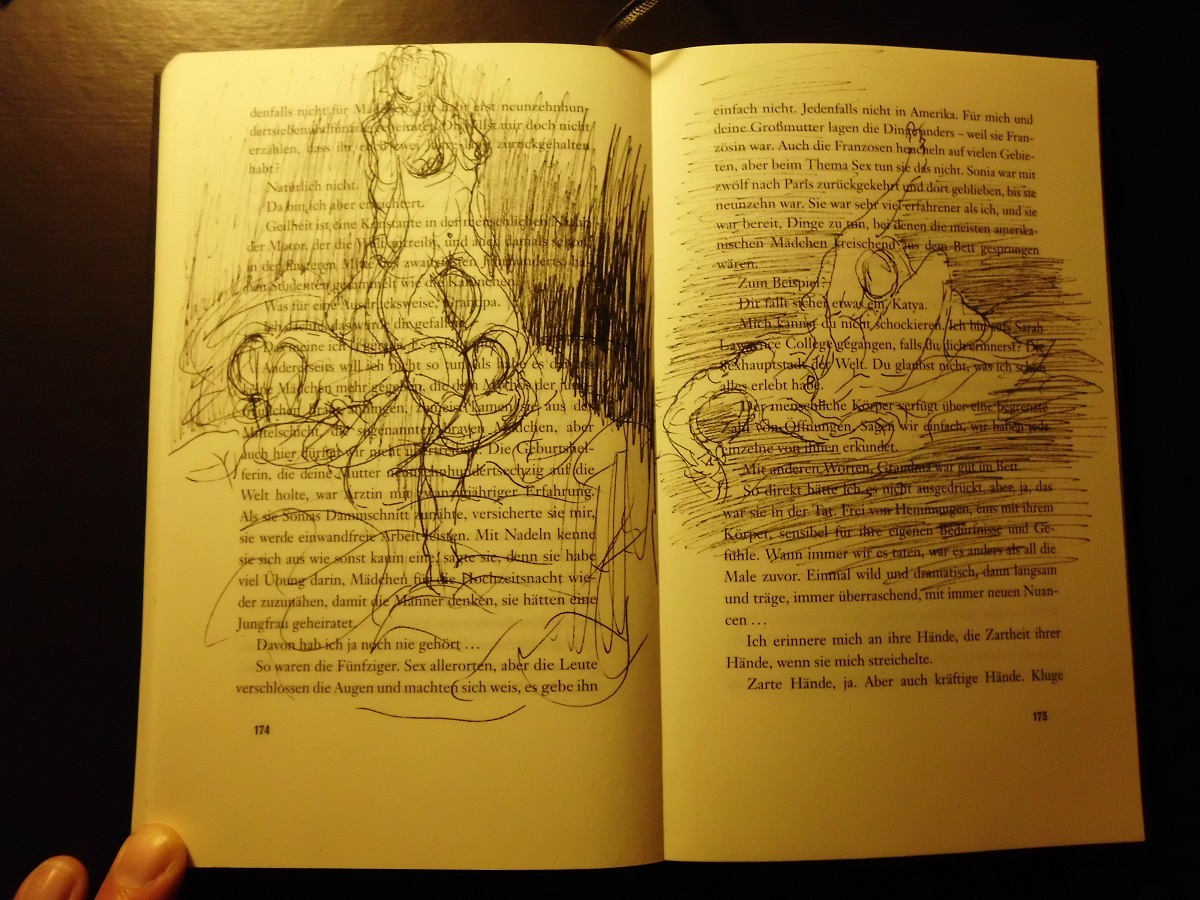 denfalls nicht für Mädchen. Ihr habt erst neunzehnhun-
dertsiebenundfünfzig geheiratet. Du willst mir doch nicht
erzählen, dass ihr euch zwei Jahre lang zurückgehalten
habt?
Natürlich nicht.
Da bin ich aber erleichtert.
Geilheit ist eine Konstante in der menschlichen Natur,
der Motor, der die Welt antreibt, und auch damals schon,
in der finsteren Mitte des zwanzigsten Jahrhunderts, ha-
ben Studenten gerammelt wie die Kaninchen.
Was für eine Ausdrucksweise, Grandpa.
Ich dachte, das würde dir gefallen.
Das meine ich ja gerade. Es gefällt
Andererseits will ich nicht so tun, als habe es damals
keine Mädchen mehr gegeben, die dem Mythos der jung-
fräulichen Braut anhingen, zumeist kamen sie aus der
Mittelschicht, die sogenannten braven Mädchen, aber
auch hier dürfen wir nicht übertreiben. Die Geburtshel-
ferin, die deine Mutter neunzehnhundertsechzig auf die
Welt holte, war Ärztin mit zwanzigjähriger Erfahrung.
Als sie Sonias Dammschnitt zunähte, versicherte sie mir,
sie werde einwandfreie Arbeit leisten. Mit Nadeln kenne
sie sich aus wie sonst kaum eine, sagte sie, denn sie habe
viel Übung darin, Mädchen für die Hochzeitsnacht wie-
der zuzunähen, damit die Männer denken, sie hätten eine
Jungfrau geheiratet.
Davon hab ich ja noch nie gehört …
So waren die Fünfziger. Sex allerorten, aber die Leute
verschlossen die Augen und machten sich weis, es gebe ihn
174
einfach nicht. Jedenfalls nicht in Amerika. Für mich und
deine Großmutter lagen die Dinge anders – weil sie Fran-
zösin war. Auch die Franzosen heucheln auf vielen Gebie-
ten, aber beim Thema Sex tun sie das nicht. Sonia war mit
zwölf nach Paris zurückgekehrt und dort geblieben, bis sie
neunzehn war. Sie war sehr viel erfahrener als ich, und sie
war bereit, Dinge zu tun, bei denen die meisten amerika-
nischen Mädchen kreischend aus dem Bett gesprungen
wären.
Zum Beispiel?
Dir fällt sicher etwas ein, Katya.
Mich kannst du nicht schockieren. Ich bin aufs Sarah
Lawrence College gegangen, falls du dich erinnerst? Die
Sexhauptstadt der Welt. Du glaubst nicht, was ich schon
alles erlebt habe.
Der menschliche Körper verfügt über eine begrenzte
Zahl von Öffnungen. Sagen wir einfach, wir haben jede
einzelne von ihnen erkundet.
Mit anderen Worten, Grandma war gut im Bett.
So direkt hätte ich es nicht ausgedrückt, aber, ja, das
war sie in der Tat. Frei von Hemmungen, eins mit ihrem
Körper, sensibel für ihre eigenen Bedürfnisse und Ge-
fühle. Wann immer wir es taten, war es anders als all die
Male zuvor. Einmal wild und dramatisch, dann langsam
und träge, immer überraschend, mit immer neuen Nuan-
cen …
Ich erinnere mich an ihre Hände, die Zartheit ihrer
Hände, wenn sie mich streichelte.
Zarte Hände, ja. Aber auch kräftige Hände. Kluge
175